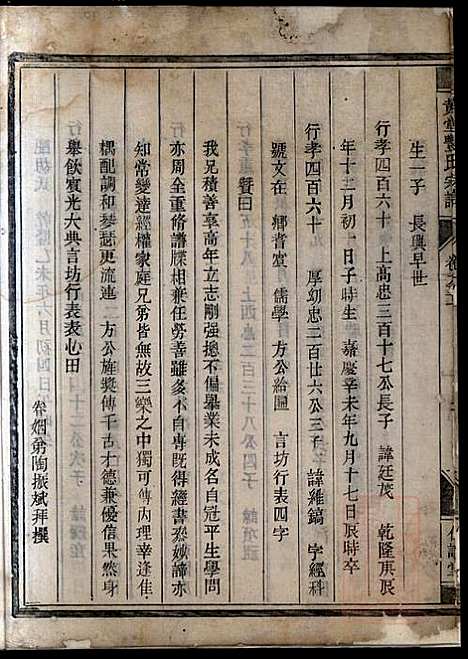 生一子 長興早世
行孝四百六十一 上高忠三百十七公長子 諱廷茂 乾隆庚辰
年十二月初一日子時生 嘉慶辛未年九月十七日辰時卒
行孝四百六十 厚幼忠二百廿六公三子 諱維鎬 字經科
號文在 鄉耆賓 儒學 方公給匾 言坊行表四字
贊曰
我兄積善享高年立志剛強摠不偏舉業未成名自冠平生學問
亦周全重修譜牒相兼任勞善雖多不自專既得經書教姒諦亦
知常變達經權家庭兄弟皆無故三樂之中獨可傳內理幸逢佳
耦配調和琴瑟更流連 二方公旌獎傳千古才德兼優信果然身
舉飲賓光大典言坊行表表心田
眷姻弟陶振斌拜撰